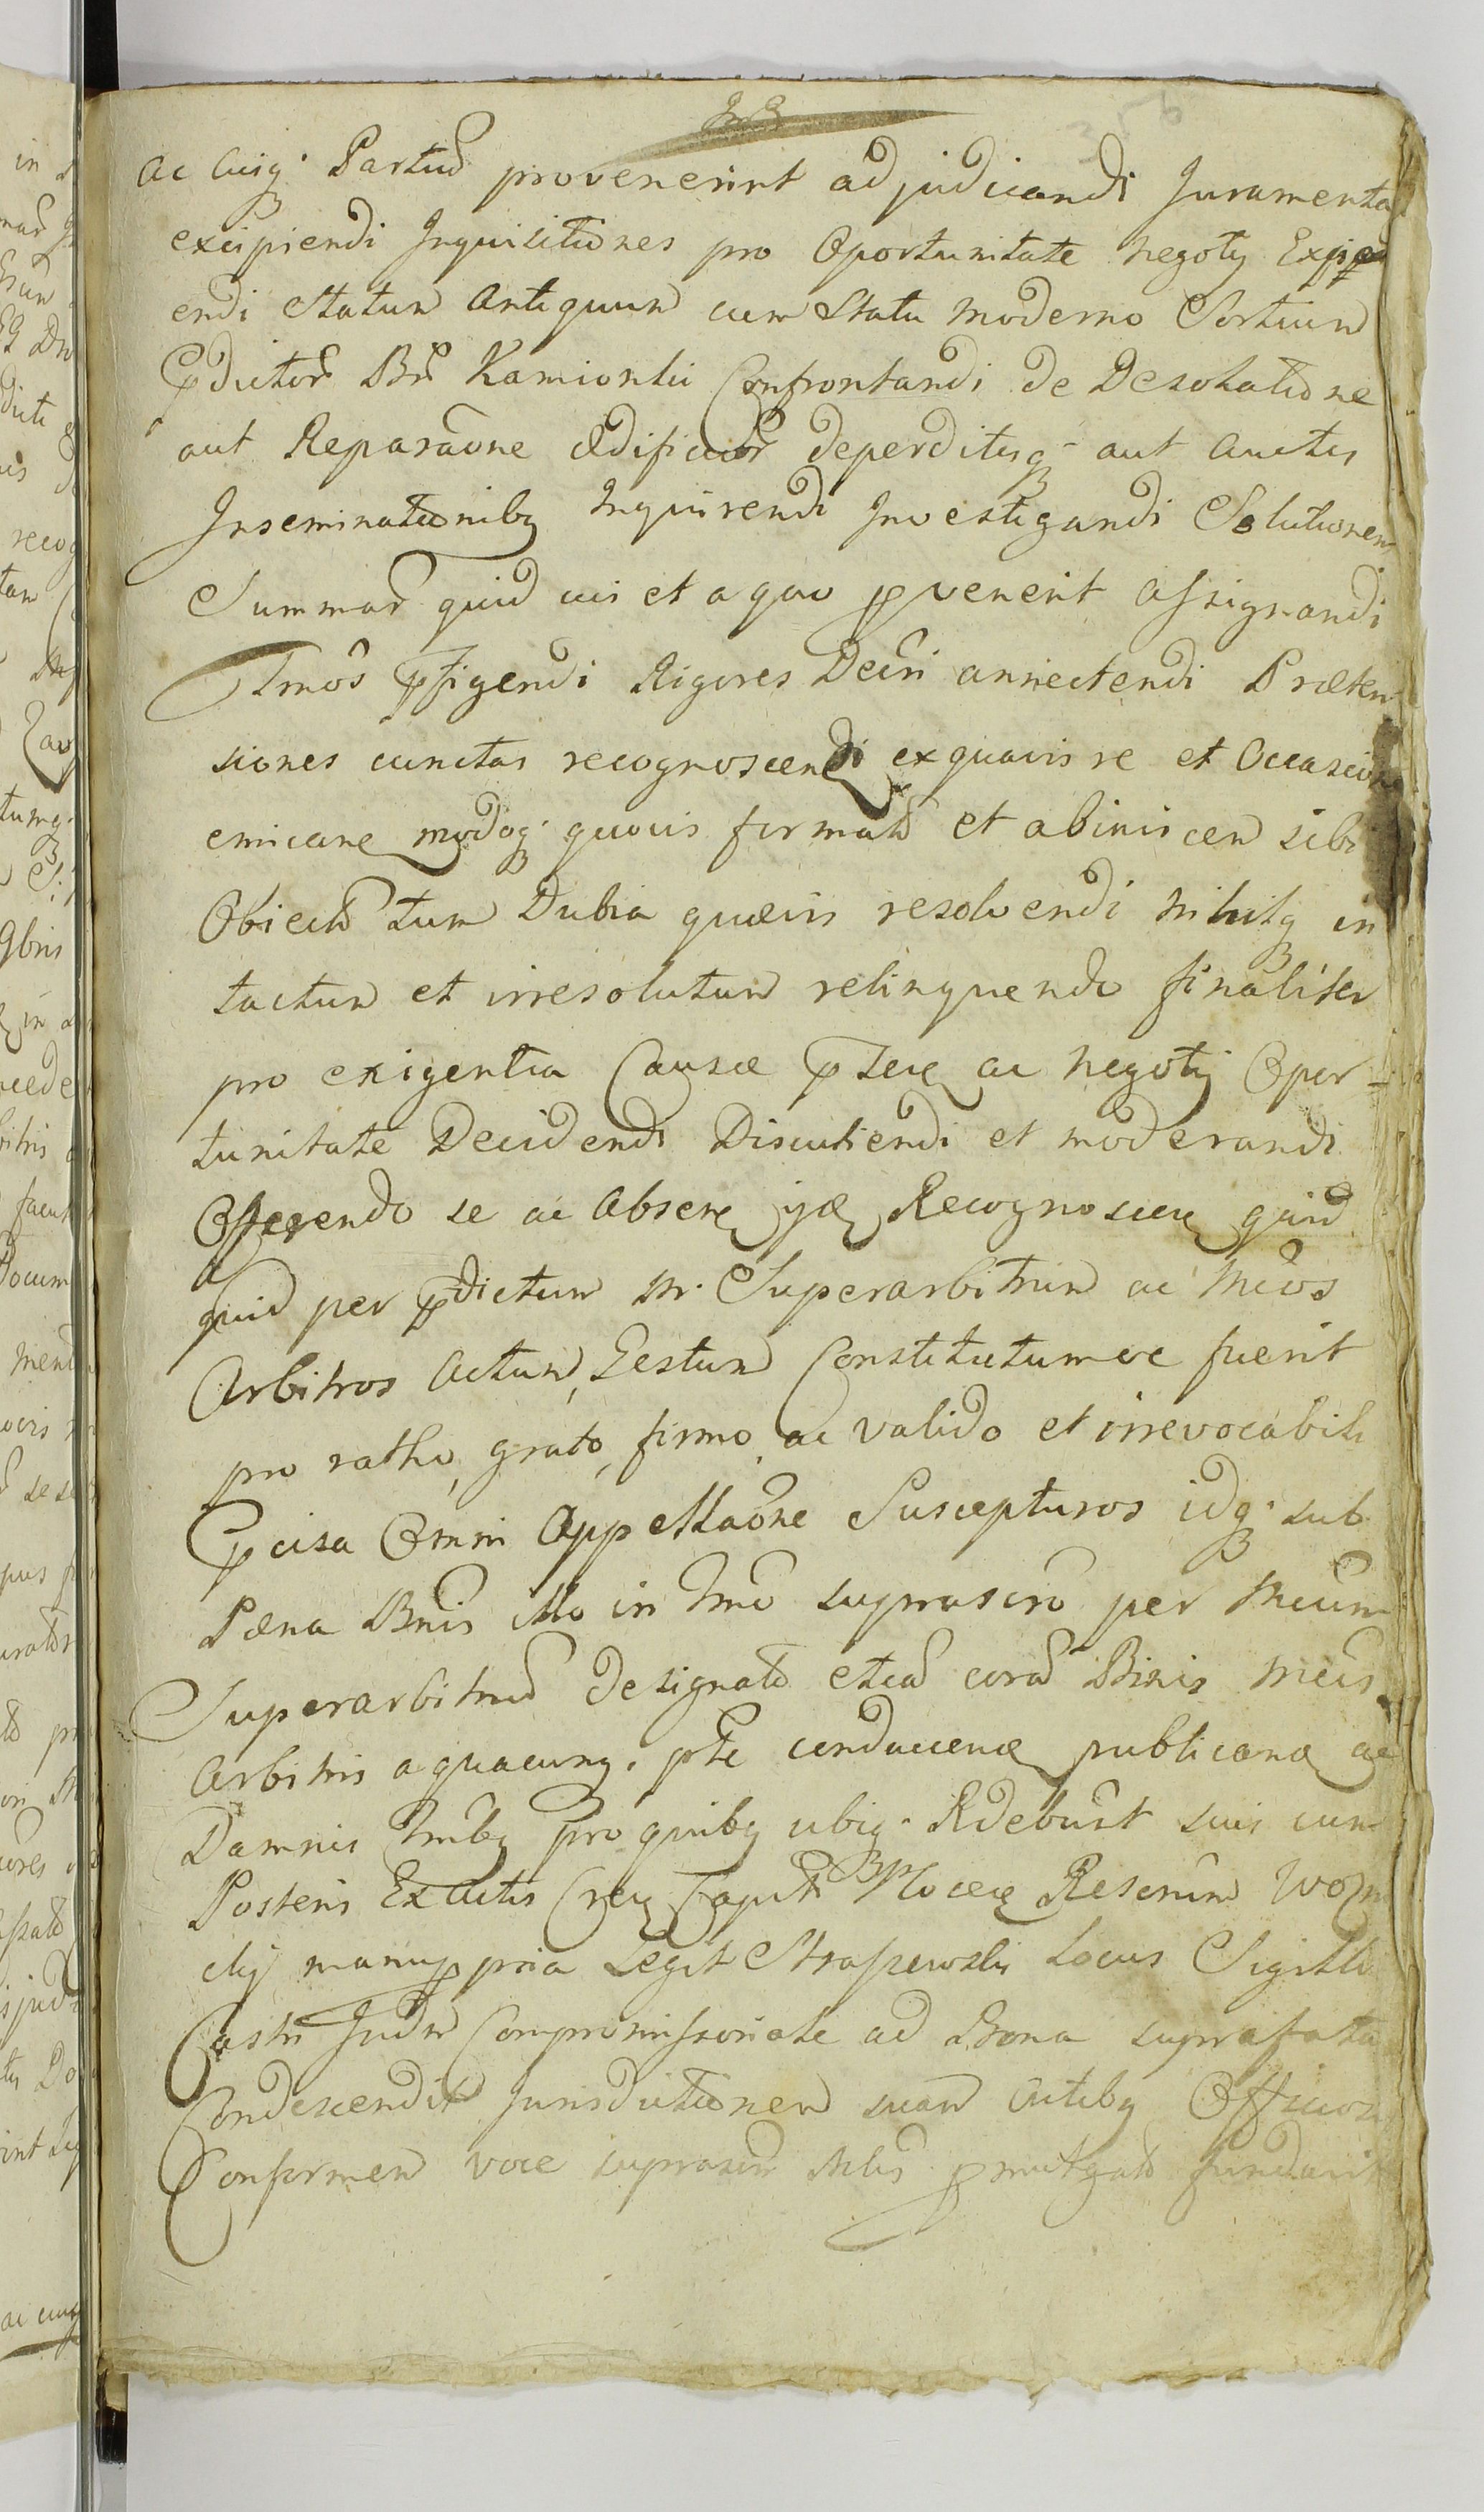 ac cuiq. Partiu provenerint adjudicandi Juramenta
excipiendi Inquisitiones pro Oportunitate negoty
endi Statum Antiquum cum Statu moderno Sortium
pdictor Bn Kamionki Confrontandi de Desolatione
aut Reparaone ædificior deperditisq aut auctis
Inseminationibq Inquirendi Investigandi Solutionem
Summar quid cui et a quo pvenerit assignandi
Tmos pfigendi Rigores Decri annectendi Præten
siones cunctas recognoscendi exquavis re et Occasione
emicane modoq quovis format et abinvicem sibi
Obiect tum Dubia quævis resolvendi nihilq in
tactum et irresolutum relinquendo finaliter
pro exigentia Causæ pseue ac negoty Opor-
tunitate Decidendi Discutiendi et moderandi
Offerendo se ac absene Recognoscere quid
quid per pdictum M. Superarbitrum ac Mcos
Arbitros actum, Gestum Constitutumve fuerit
pro ratho, grato, firmo, ac valido et irrevocabili
pcisa Omni Appellaone Suscepturos idq. sub
Pæna Bnis illo in Tmo suprascro per Mcum
Superarbitrum designato etiam coram Binis Mcis
Arbitris a quacunq. pte conducena publicana ac
Damnis Trribq pro quibq ubiq. Rdebunt suis cum
Posteris Ex Actis Crey Capit Plocey Rescrum Wozni
cky manu ppria Legit Straszewski Locus Sigilli
Castri Judm Compromissoriale ad Bona suprafata
Condescendit Jurisdictionem suam Actibq Officiosis
Conformem voce suprascri Mlis pmulgat fundavit